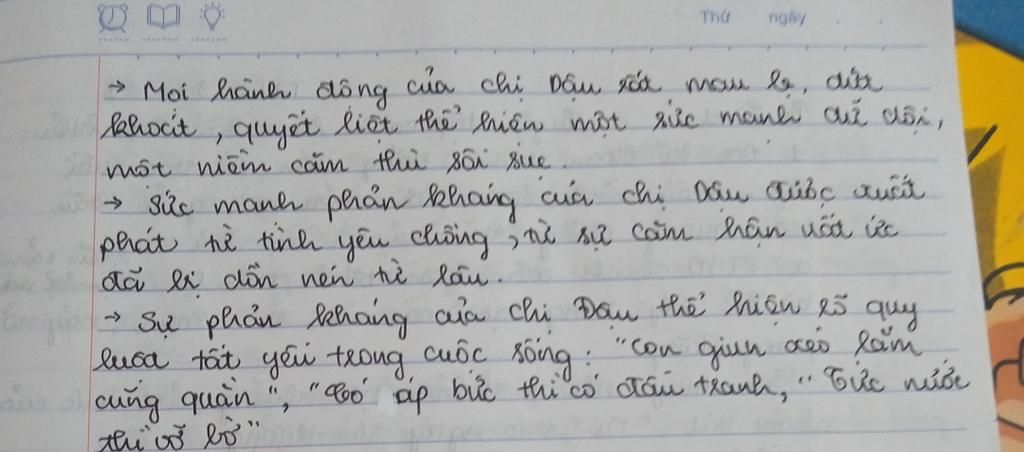 Thứ ngày
→ Mọi hành động của chị Dậu rất mau lẹ, dứt
khoát, quyết liệt thể hiện một sức mạnh dữ dội,
một niềm căm thù sôi sục.
→ Sức mạnh phản kháng của chị Dậu được xuất
phát từ tình yêu chồng, từ sự căm hận uất ức
đã bị dồn nén từ lâu.
→ Sự phản kháng của chị Dậu thể hiện rõ quy
luật tất yếu trong cuộc sống: "Con giun xéo lắm
cũng quằn", "Có áp bức thì có đấu tranh, "Tức nước
thì vỡ bờ"